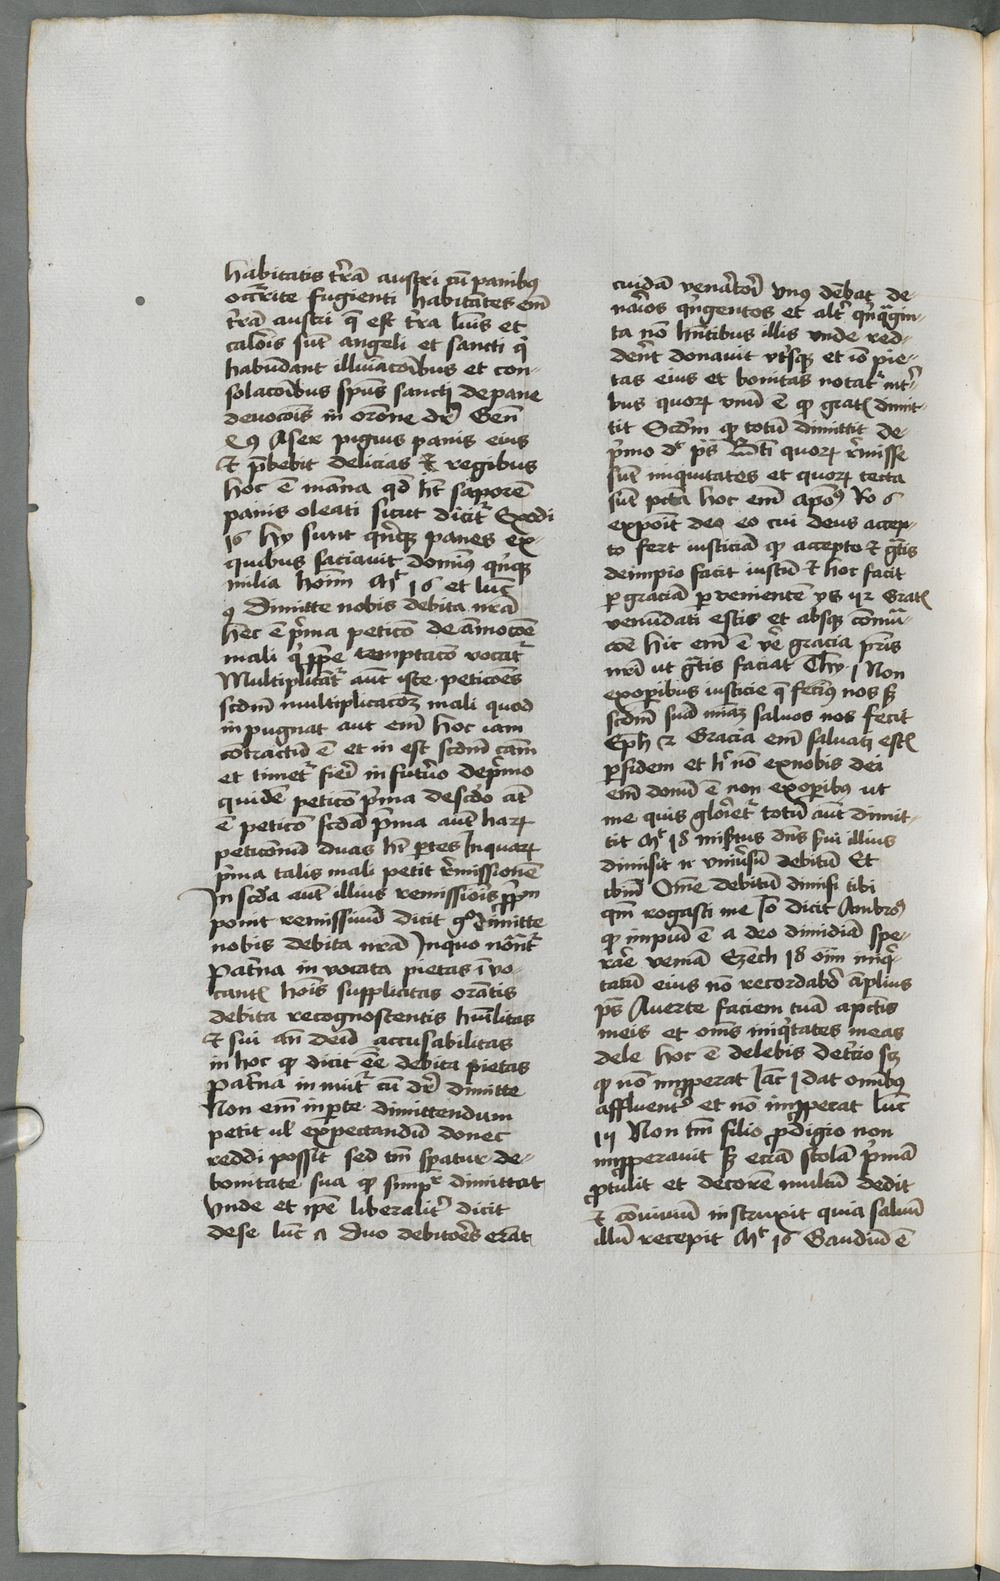 habitatis t'rã austri cũ panibus
occ̃rrite fugienti habitãtes em̃
t'rã austri q̃ est t'ra luĩs et
calois sũt angeli et sancti q̇
habũdant illuĩacõibus et con-
solacõibus spũs sancti de pane
deuocõis in orõne dr̃ Geñ
49 Aser pigwis panis eius
et p̃bebit delicias regibus
hoc ẽ mãna qd̃ ht̃ saporẽ
panis oleati sicut dicit' Exodi
16 hy sunt qñqz panes ex-
quibus saciauit domiñus qñqz
milia hoĩm Mt 16 et luc̃
9 Dimitte nobis debita nr̃a
hec ẽ p̃ma peticõ de amocõe
mali q̇ spẽ temptacõ vocat'
Multiplicãt' aut̃ iste peticões
scdm̃ multiplicacõz mali quod
inpugnat aut em̃ hoc iam
cõtractũ ẽ et in est scdm̃ cãm
et timet' fieri in futuro de p̃mo
quidẽ peticõ p̃ma de scdo at̃
ẽ peticõ scdã p̃ma aut̃ harz
peticõnũ duas ht̃ p̃tes In quarz
p̃ma talis mali petit r̃missionẽ
In scda aut̃ illius remissiõis
ponit remissiuũ dicit g° Dimitte
nobis debita nr̃a In quo notãt'
Pat'na in vocata pietas ĩ vo-
cantis hoĩs supplicitas orãtis
debita recognoscentis huĩlitas
et sui añ deũ accusabilitas
in hoc qz dicit ẽẽ debita pietas
pat'na in nuĩt' cũ dr̃ dimitte
Non em̃ in parte dimittendum
petit ul' expectandũ donec
reddi possit sed tm̃ spatur de-
bonitate sua qz simp̃r dimittat
vnde et ip̃e liberalit' dicit
de se luc̃ 7 Duo debitores erãt
cuidã venat'ori vnus deb̃at de-
narios qñgentos et alt' qñq̃gin-
ta nõ hñtibus illis vnde red-
der̃nt donauit vt'sqz et iõ pie-
tas eius et bonitas notat' int'
bus quorz vnũ ẽ qz grat' dimit-
tit Scdm̃ qz totũ dimittit de-
p̃mo dr p̃s Bt̃i quorz r̃misse
sũt iniquitates et quorz tecta
sũt pctã hoc em̃ aposẽ Ro 6
expoĩt deo eo cui deus accep-
to fert iusticiã qz accepto et gr̃tis
de impio facit iustũ et hoc facit
per graciã preuenientẽ ys 52 Grat'
venũdati estis et absqz cõmũ-
coẽ hic em̃ ẽ v̇e gracia p̃ris
nr̃i ut gr̃tis faciat Thy 1 Non
ex operibus iusticie q̃ fecimus nos sz
scdm̃ suã miãz saluos nos fecit
Eph 2 Gracia em̃ saluati estis
per fidem et h' nõ ex nobis dei
em̃ donũ ẽ non ex operibus ut
ne quis gloriet' totũ aut̃ dimit-
tit Mt 18 misertus dñs s'ui illius
dimisit ei vniu'sũ debitũ Et
ibid̃ Om̃e debitũ dimisi tibi
qm̃ rogasti me Iõ dicit Ambros'
qz impiũ ẽ a deo dimidiã spe-
rare veniã Ezech 18 oĩm iniqui-
tatũ eius nõ recordabor ãplius
p̃s Auerte faciem tuã a pctĩs
meis et om̃s iniq̃tates meas
dele hoc ẽ delebis det'cio sz
qz nõ imp̃perat Iac̃ 1 dat om̃ibus
affluent' et nõ imp̃perat luc̃
15 Non tm̃ filio p̃digio non
imp̃perauit sz eciã stolã p̃mã
p̃tulit et decorẽ multũ dedit
et conuiuiũ instruxit quia saluũ
illũ recepit Mt 16 Gaudiũ ẽ